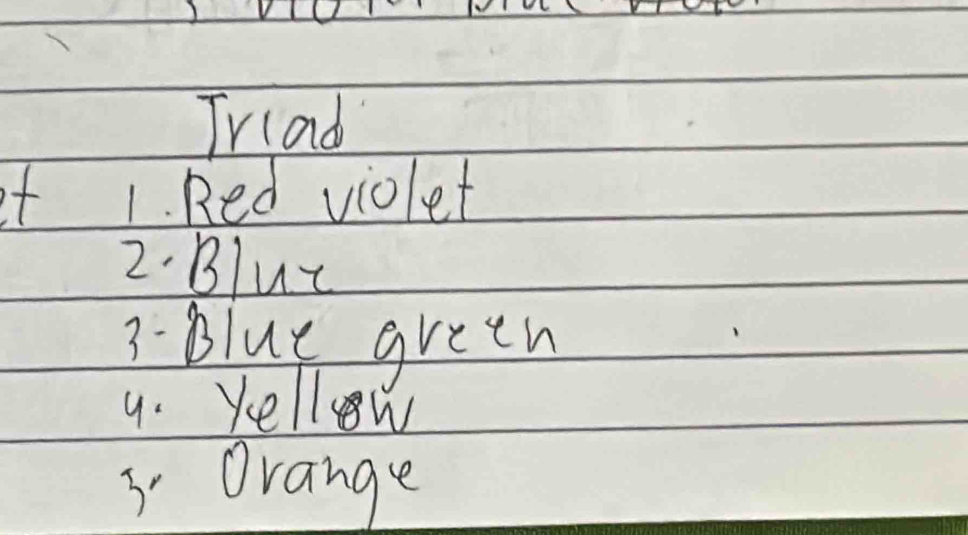 Triad
et 1. Red violet
2. Blue
3- Blue green
4. Yellow
5. Orange